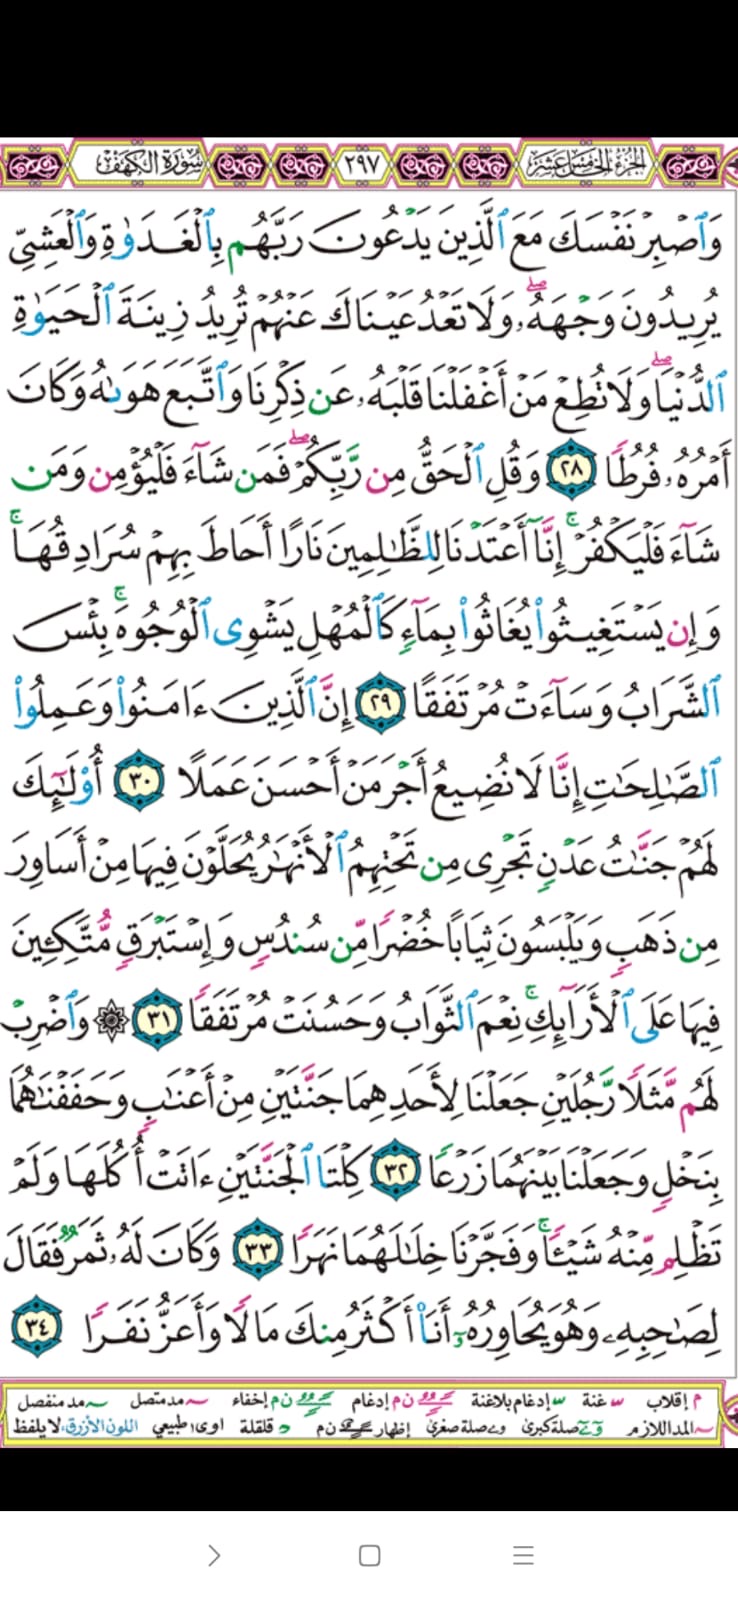 الجزء الخامس عشر ٢٩٧ سورة الكهف
وَٱصۡبِرۡ نَفۡسَكَ مَعَ ٱلَّذِينَ يَدۡعُونَ رَبَّهُم بِٱلۡغَدَوٰةِ وَٱلۡعَشِيِّ
يُرِيدُونَ وَجۡهَهُۥۖ وَلَا تَعۡدُ عَيۡنَاكَ عَنۡهُمۡ تُرِيدُ زِينَةَ ٱلۡحَيَوٰةِ
ٱلدُّنۡيَاۖ وَلَا تُطِعۡ مَنۡ أَغۡفَلۡنَا قَلۡبَهُۥ عَن ذِكۡرِنَا وَٱتَّبَعَ هَوَىٰهُ وَكَانَ
أَمۡرُهُۥ فُرُطٗا ٢٨ وَقُلِ ٱلۡحَقُّ مِن رَّبِّكُمۡۖ فَمَن شَآءَ فَلۡيُؤۡمِن وَمَن
شَآءَ فَلۡيَكۡفُرۡۚ إِنَّآ أَعۡتَدۡنَا لِلظَّٰلِمِينَ نَارًا أَحَاطَ بِهِمۡ سُرَادِقُهَاۚ
وَإِن يَسۡتَغِيثُواْ يُغَاثُواْ بِمَآءٖ كَٱلۡمُهۡلِ يَشۡوِي ٱلۡوُجُوهَۚ بِئۡسَ
ٱلشَّرَابُ وَسَآءَتۡ مُرۡتَفَقًا ٢٩ إِنَّ ٱلَّذِينَ ءَامَنُواْ وَعَمِلُواْ
ٱلصَّٰلِحَٰتِ إِنَّا لَا نُضِيعُ أَجۡرَ مَنۡ أَحۡسَنَ عَمَلًا ٣٠ أُوْلَٰٓئِكَ
لَهُمۡ جَنَّٰتُ عَدۡنٖ تَجۡرِي مِن تَحۡتِهِمُ ٱلۡأَنۡهَٰرُ يُحَلَّوۡنَ فِيهَا مِنۡ أَسَاوِرَ
مِن ذَهَبٖ وَيَلۡبَسُونَ ثِيَابًا خُضۡرٗا مِّن سُندُسٖ وَإِسۡتَبۡرَقٖ مُّتَّكِـِٔينَ
فِيهَا عَلَى ٱلۡأَرَآئِكِۚ نِعۡمَ ٱلثَّوَابُ وَحَسُنَتۡ مُرۡتَفَقٗا ٣١ ۞ وَٱضۡرِبۡ
لَهُم مَّثَلٗا رَّجُلَيۡنِ جَعَلۡنَا لِأَحَدِهِمَا جَنَّتَيۡنِ مِنۡ أَعۡنَٰبٖ وَحَفَفۡنَٰهُمَا
بِنَخۡلٖ وَجَعَلۡنَا بَيۡنَهُمَا زَرۡعٗا ٣٢ كِلۡتَا ٱلۡجَنَّتَيۡنِ ءَاتَتۡ أُكُلَهَا وَلَمۡ
تَظۡلِم مِّنۡهُ شَيۡـٔٗاۚ وَفَجَّرۡنَا خِلَٰلَهُمَا نَهَرٗا ٣٣ وَكَانَ لَهُۥ ثَمَرٞ فَقَالَ
لِصَٰحِبِهِۦ وَهُوَ يُحَاوِرُهُۥٓ أَنَا۠ أَكۡثَرُ مِنكَ مَالٗا وَأَعَزُّ نَفَرٗا ٣٤
م إقلاب غنة إدغام بلاغنة ن م إدغام ن م إخفاء مد متصل مد منفصل
المد اللازم صلة كبرى صلة صغرى إظهار ن م د قلقلة اوى طبيعي اللون الأزرق، لا يلفظ